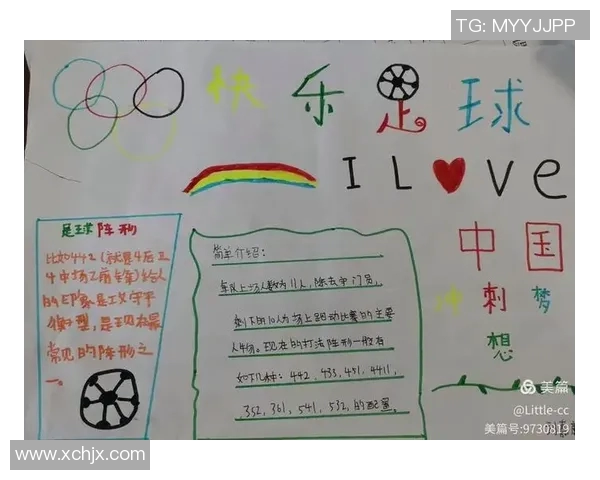 TG: MYYJJPP
快乐足球
I L♥Ve
中国
冲刺梦
想
足球阵形
比如442(就是4后卫
4中场2前锋)给人
的印象是攻守平
衡型,是现在最
常见的阵形之
一。
简单介绍:
每队上场人数为11人,除去守门员,
剩下的10人为场上跑动比赛的主要
人物。现在的打法阵形一般有
如下几种:442,433,451,4411,
352,361,541,532,的配置。
美篇
@Little-cc
美篇号:9730819
www.xchjx.com